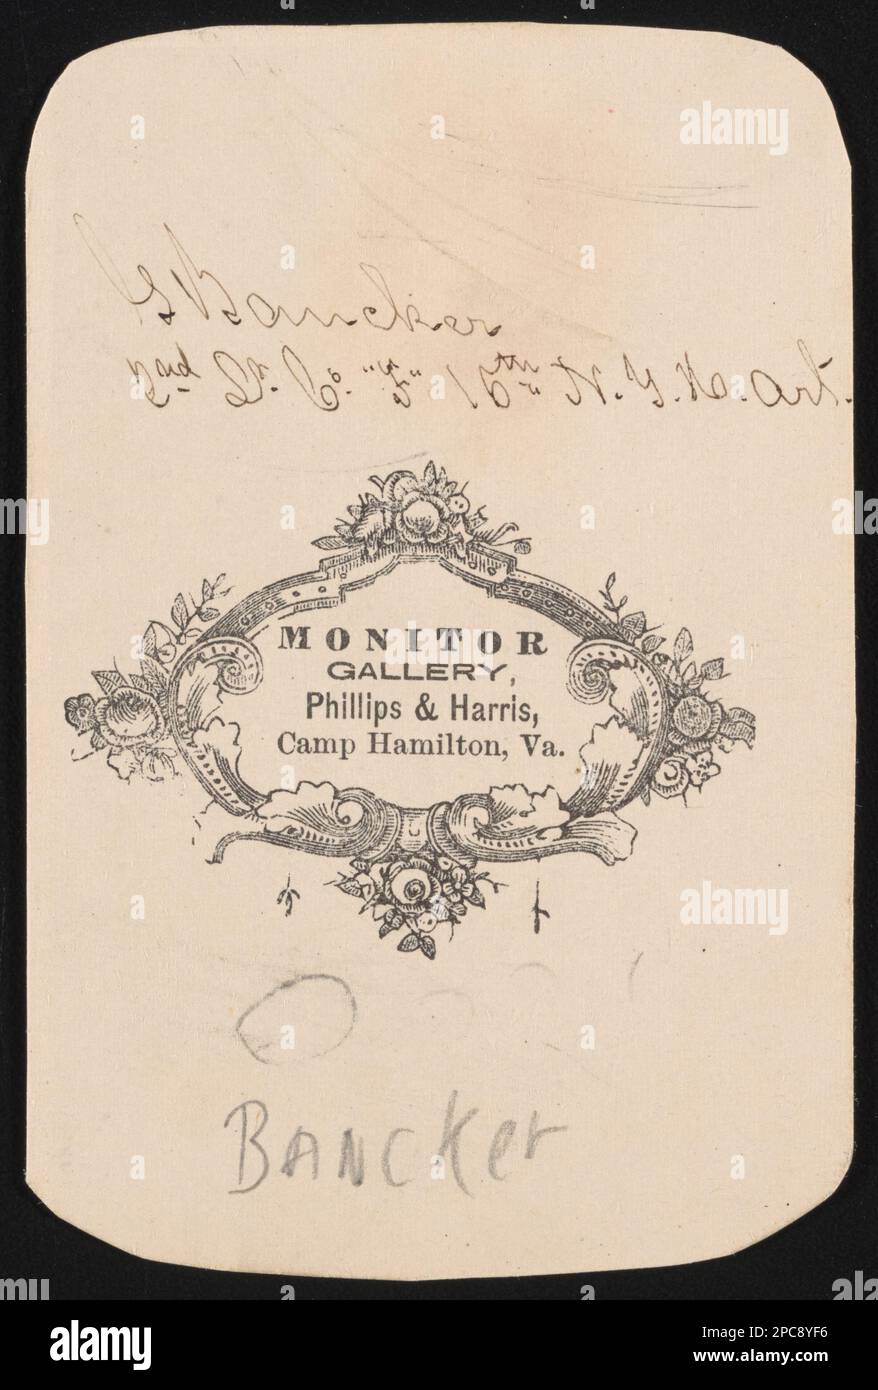 G Bancker
2nd Lt. Co. "F" 16th N.Y.H. Art.
MONITOR
GALLERY,
Phillips & Harris,
Camp Hamilton, Va.
BANCKer
alamy
alamy
alamy
Image ID: 2PC8YF6
www.alamy.com